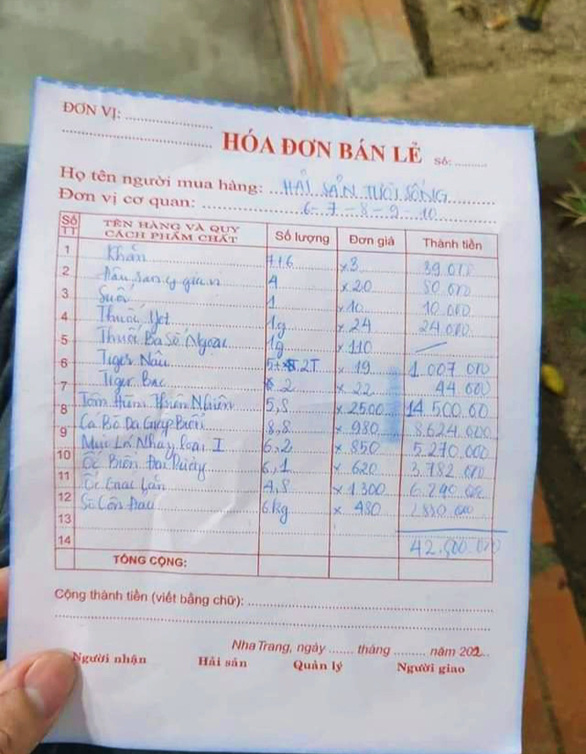 ĐƠN VỊ: ....................
HÓA ĐƠN BÁN LẺ Số: .........
Họ tên người mua hàng: HẢI SẢN TƯƠI SỐNG
Đơn vị cơ quan: 6-7-8-9-10
Số TT TÊN HÀNG VÀ QUY CÁCH PHẨM CHẤT Số lượng Đơn giá Thành tiền
1 Khăn 7+6 x3 39.000
2 4 x20 80.000
3 Suối 1 x10 10.000
4 Thuốc 1g x24 24.000
5 Thuốc Ba Số Ngoại 1g x110
6 Tiger Nâu 2T x19 1.007.000
7 Tiger Bạc 2 x22 44.000
8 Tôm Hùm Thiên Nhiên 5,8 x2500 14.500.00
9 Cá Bò Da Giáp Biển 8,8 x980 8.624.000
10 Mực Lá Nháy loại I 6,2 x850 5.270.000
11 Ốc Biển Đại Dương 6,1 x620 3.782.000
12 Ốc Lăn 4,8 x1300
13 Sò Côn Đảo 6kg x480
14
TỔNG CỘNG:
Cộng thành tiền (viết bằng chữ): ....................
Nha Trang, ngày ....... tháng ......... năm 202..
Người nhận Hải sản Quản lý Người giao